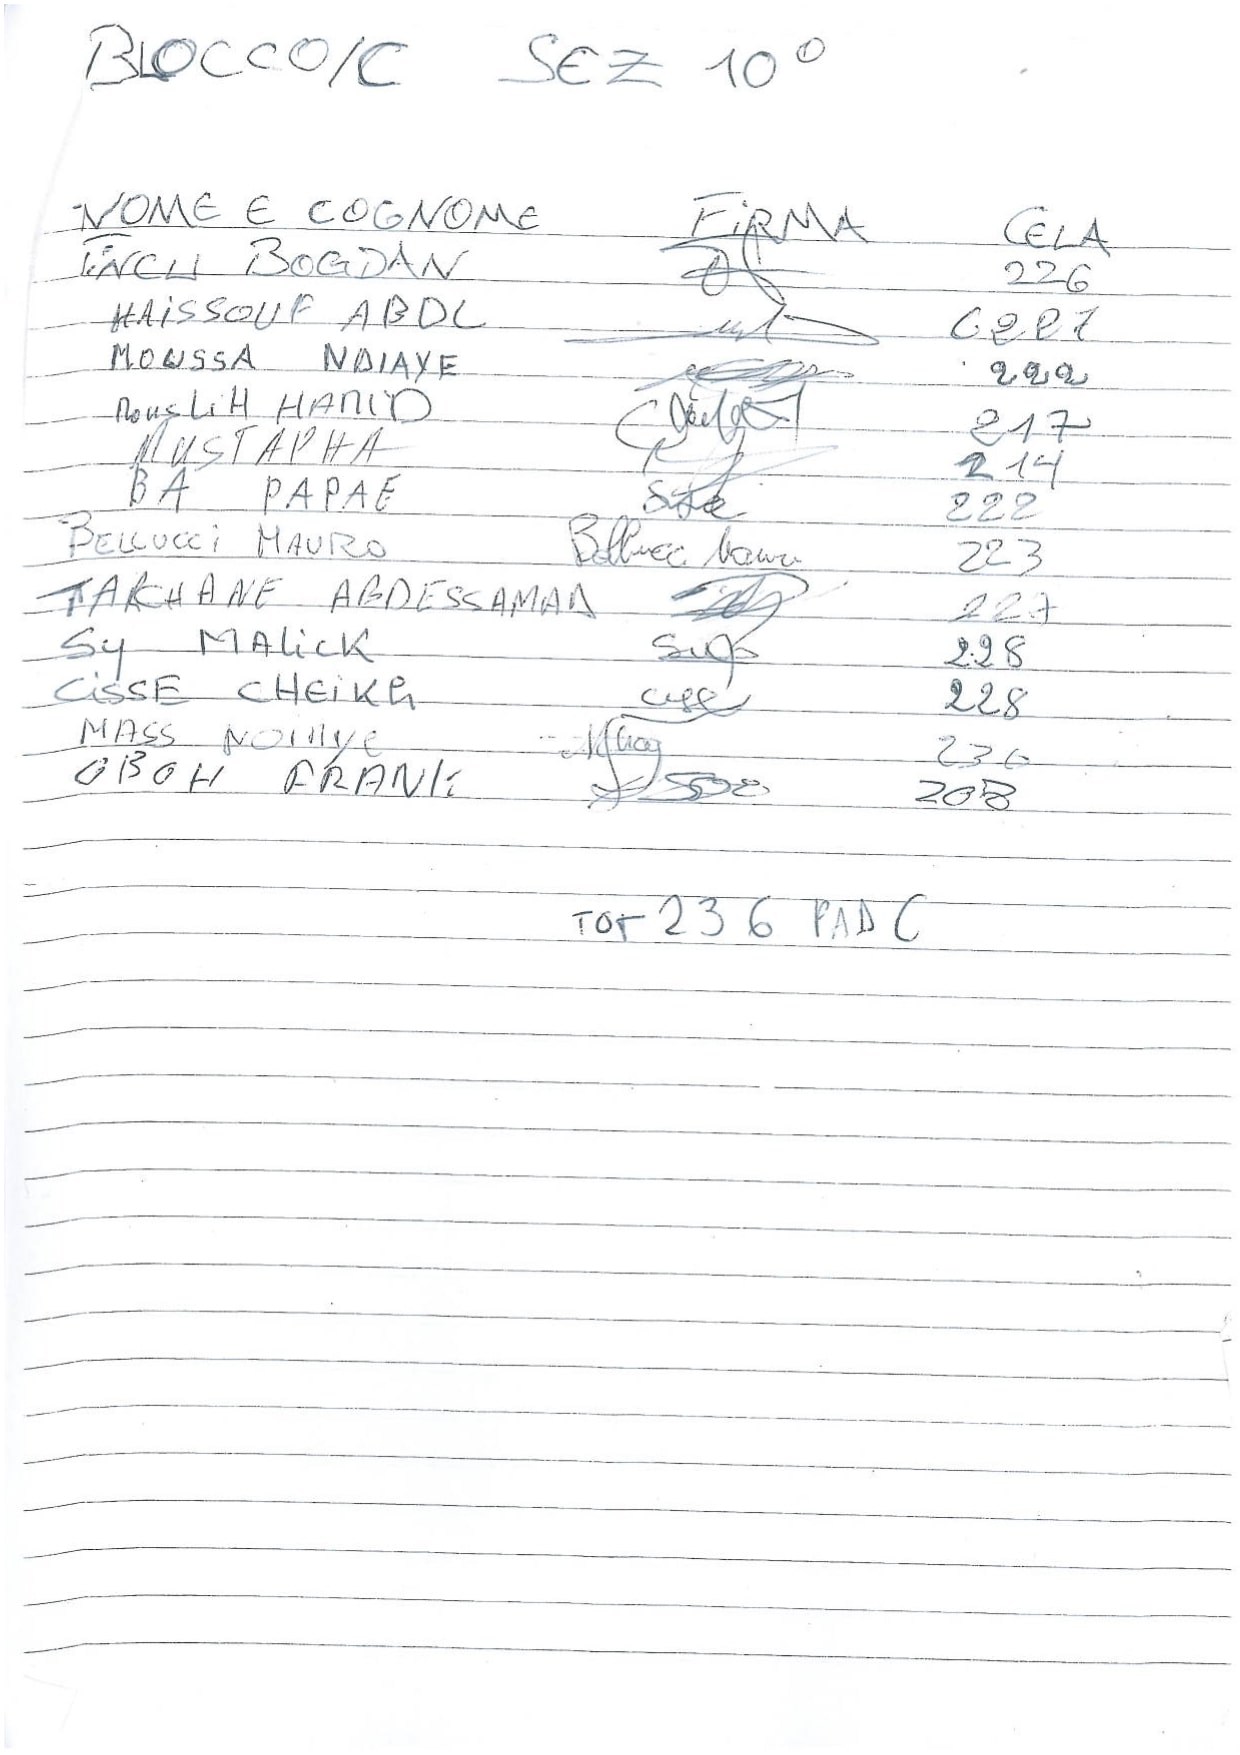 BLOCCO/C SEZ 10°
NOME E COGNOME FiRMA CELA
BOGDAN 226
HAiSSOUF ABDL C221
MOUSSA NDIAYE 222
MOUSLiH HAMID 217
MUSTAPHA 214
BA PAPAE 222
BELLUCCi MAURO 223
TARCHANE ABDESSAMAD 227
Sy MALiCK 228
CiSSE CHEiKh cisse 228
MASS NDiaye 236
OBOH FRANK 208
TOT 236 PAD C